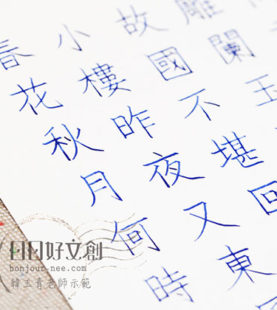 春花秋月何時
小樓昨夜又東
故國不堪回
雕闌玉
日日好文創
bonjour-nee.com
韓玉青老師示範